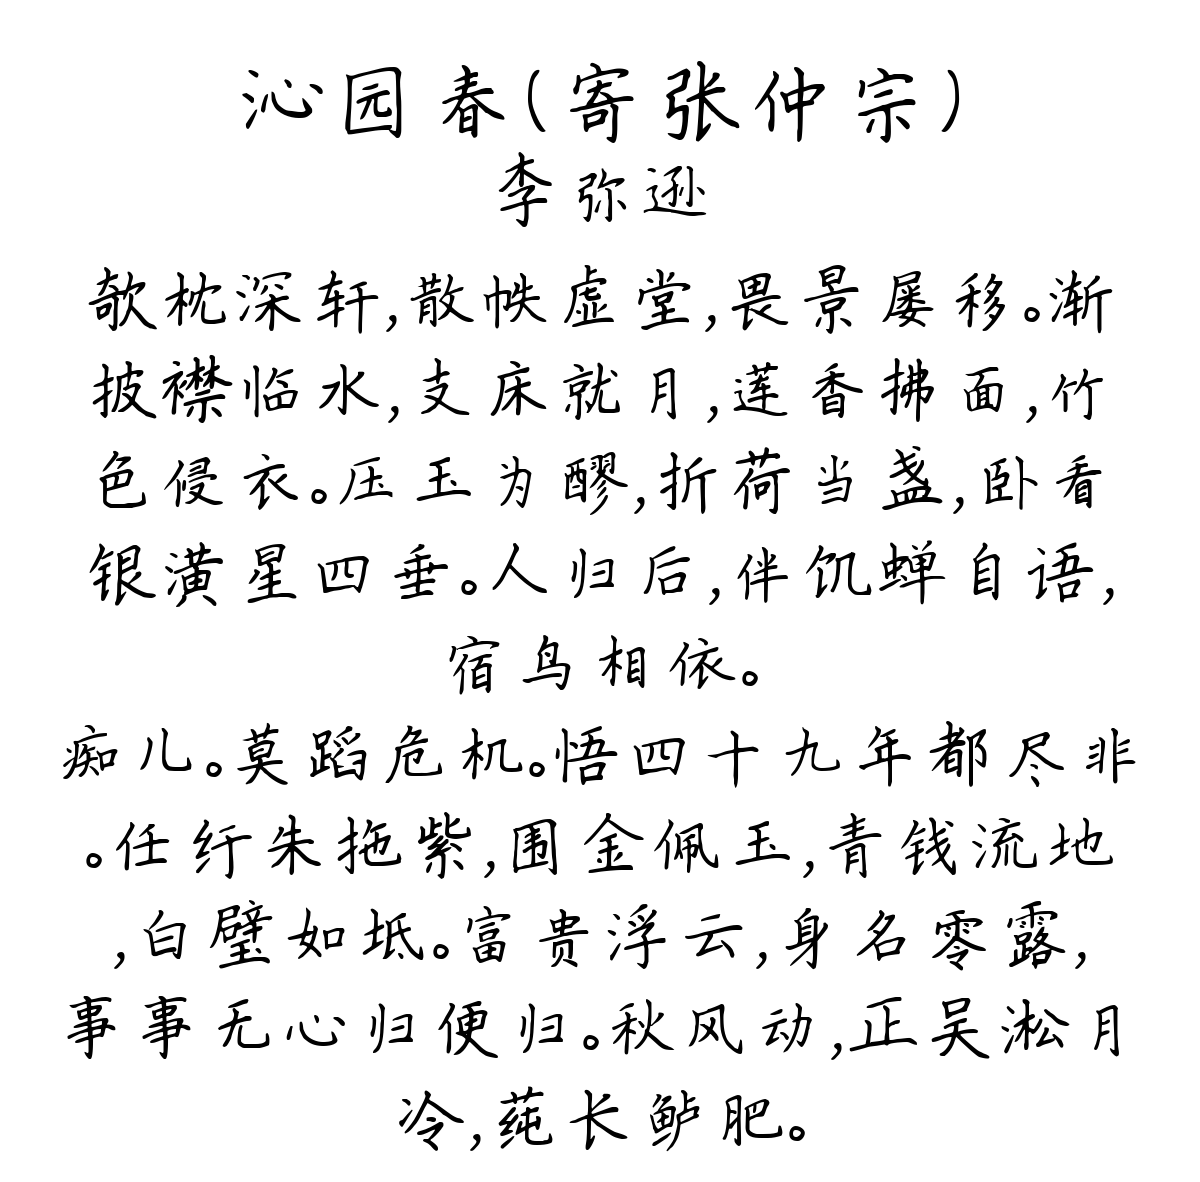 沁园春(寄张仲宗)
李弥逊
欹枕深轩,散帙虚堂,畏景屡移。渐
披襟临水,支床就月,莲香拂面,竹
色侵衣。压玉为醪,折荷当盏,卧看
银潢星四垂。人归后,伴饥蝉自语,
宿鸟相依。
痴儿。莫蹈危机。悟四十九年都尽非
。任纡朱拖紫,围金佩玉,青钱流地
,白璧如坻。富贵浮云,身名零露,
事事无心归便归。秋风动,正吴淞月
冷,莼长鲈肥。